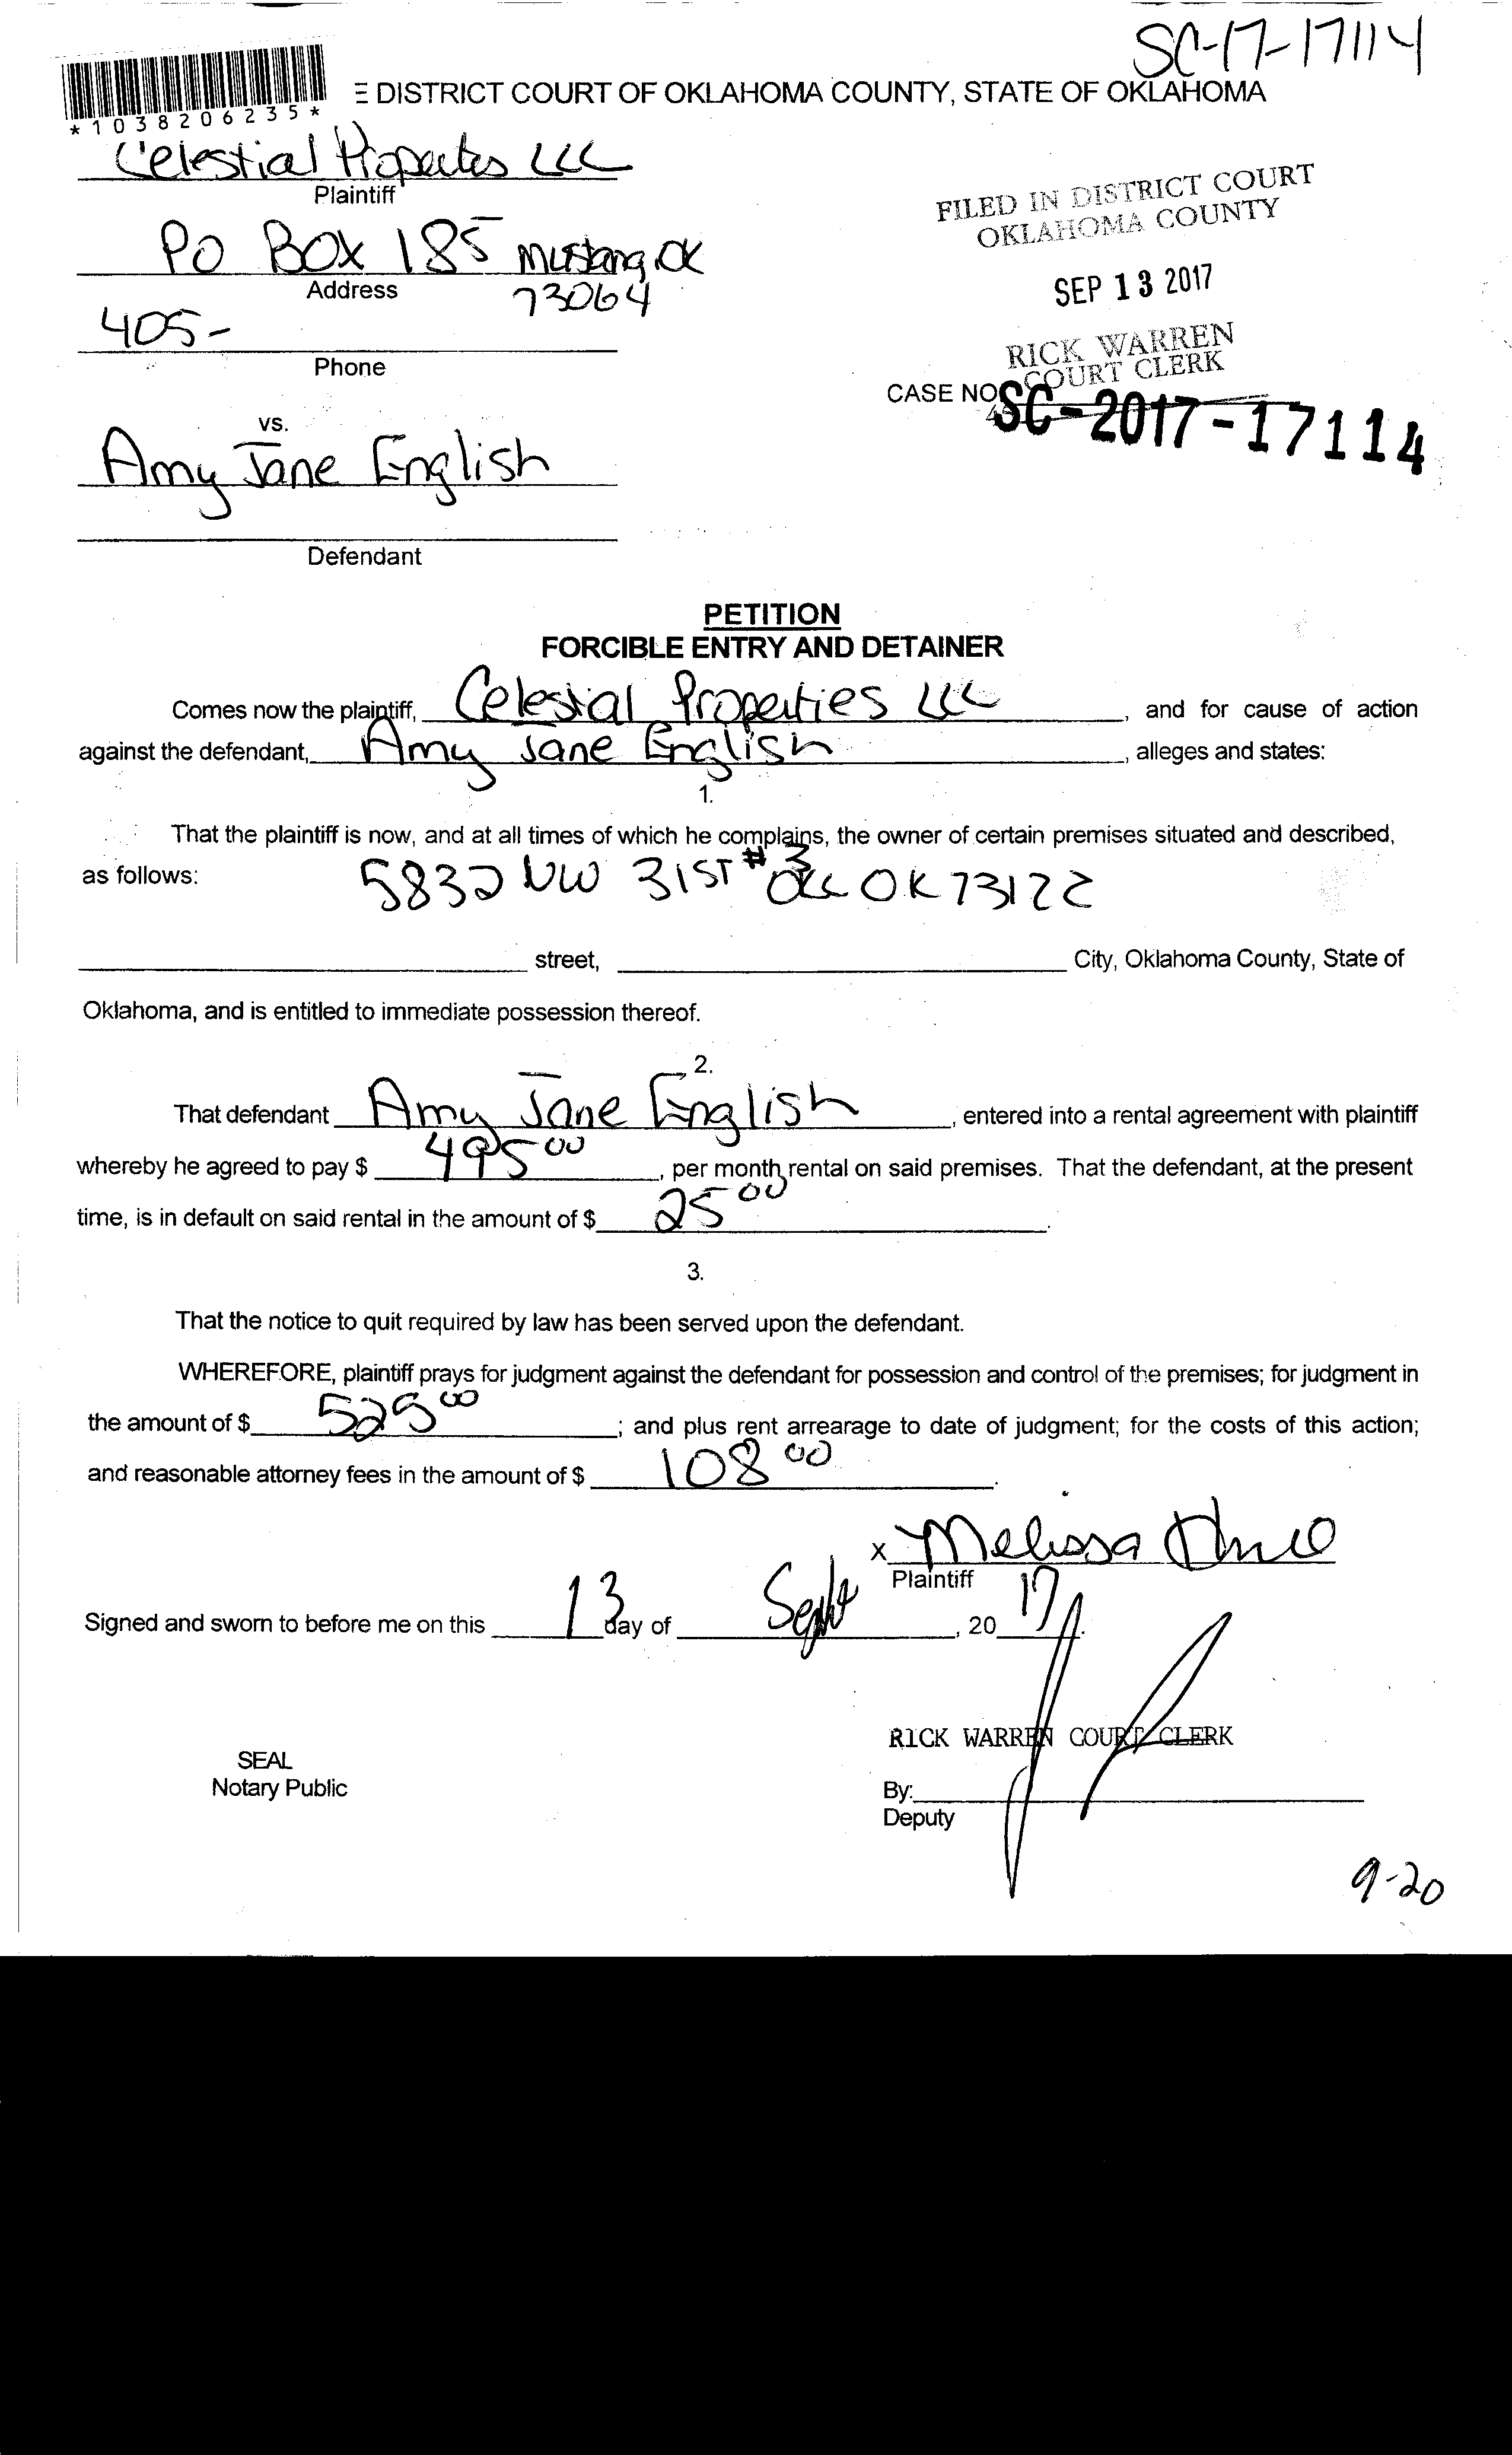 SC-17-17114
E DISTRICT COURT OF OKLAHOMA COUNTY, STATE OF OKLAHOMA
*1038206235*
Celestial Properties LLC
Plaintiff
FILED IN DISTRICT COURT
OKLAHOMA COUNTY
PO BOX 185 Mustang OK
Address
73064
SEP 13 2017
405-
Phone
RICK WARREN
COURT CLERK
CASE NO SC-2017-17114
vs.
Amy Jane English
Defendant
PETITION
FORCIBLE ENTRY AND DETAINER
Comes now the plaintiff, Celestial Properties LLC, and for cause of action
against the defendant, Amy Jane English, alleges and states:
1.
That the plaintiff is now, and at all times of which he complains, the owner of certain premises situated and described,
as follows: 5832 NW 31ST #3 OKC OK 73122
street, City, Oklahoma County, State of
Oklahoma, and is entitled to immediate possession thereof.
2.
That defendant Amy Jane English, entered into a rental agreement with plaintiff
whereby he agreed to pay $ 495 00, per month rental on said premises. That the defendant, at the present
time, is in default on said rental in the amount of $ 25 00.
3.
That the notice to quit required by law has been served upon the defendant.
WHEREFORE, plaintiff prays for judgment against the defendant for possession and control of the premises; for judgment in
the amount of $ 525 00; and plus rent arrearage to date of judgment; for the costs of this action;
and reasonable attorney fees in the amount of $ 108 00.
x Melissa
Plaintiff
Signed and sworn to before me on this 13 day of Sept, 20 17.
RICK WARREN COURT CLERK
SEAL
Notary Public
By:
Deputy
9-20